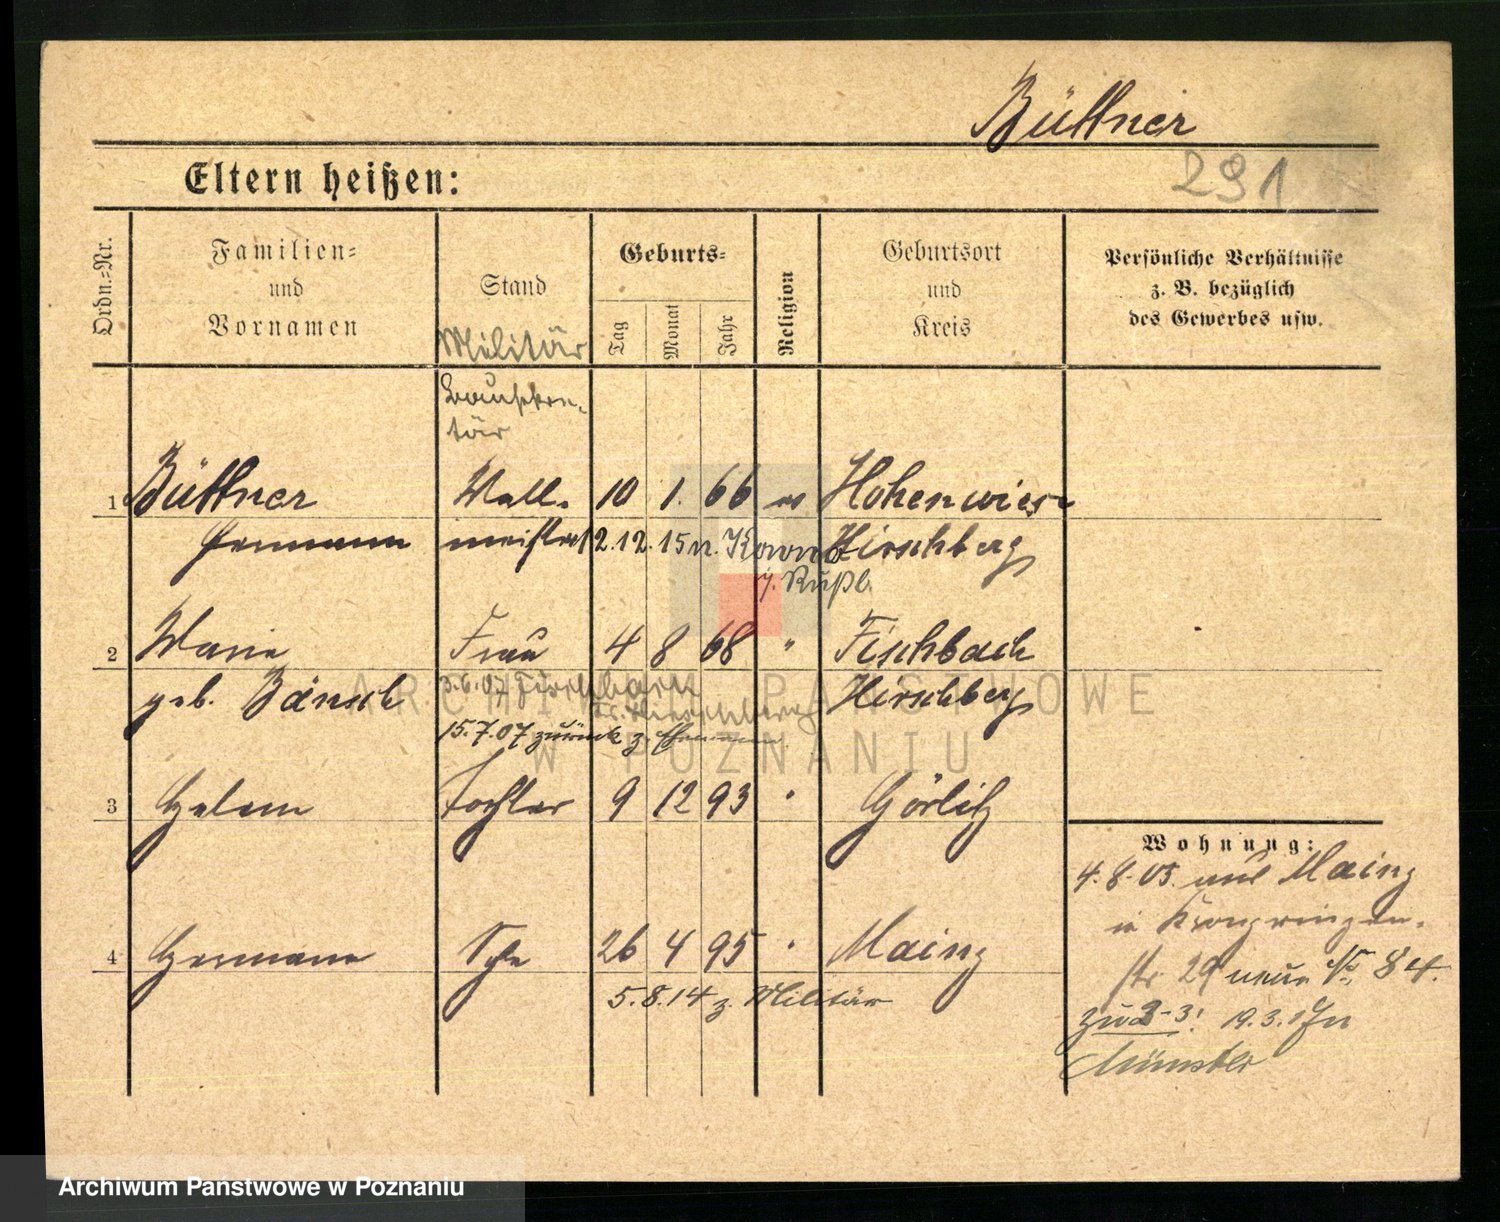 Büttner
291
Eltern heißen:
Ordn.-Nr.
Familien-
und
Vornamen
Stand
Militär
Geburts-
Tag
Monat
Jahr
Religion
Geburtsort
und
Kreis
Persönliche Verhältnisse
z. B. bezüglich
des Gewerbes usw.
Bausekre-
tär
1 Büttner Wall- 10 1. 66 ev Hohenwiese
Hermann meister 2.12.15 n. Kowno Hirschberg
i. Rußl.
2 Marie Frau 4 8 68 " Fischbach
geb. Bänsch 3.6.07 Fischbach Hirschberg
Kr. Hirschberg
15.7.07 zurück z. Ehemann
3 Helene Tochter 9 12 93 " Görlitz
Wohnung:
4.8.05. aus Mainz
in Kronprinzen-
4 Hermann Sohn 26 4 95 " Mainz
str 29 neue No 84.
5.8.14 z. Militär
zu 2-3: 19.3.17 n
Münster
ARCHIWUM PAŃSTWOWE
W POZNANIU
Archiwum Państwowe w Poznaniu